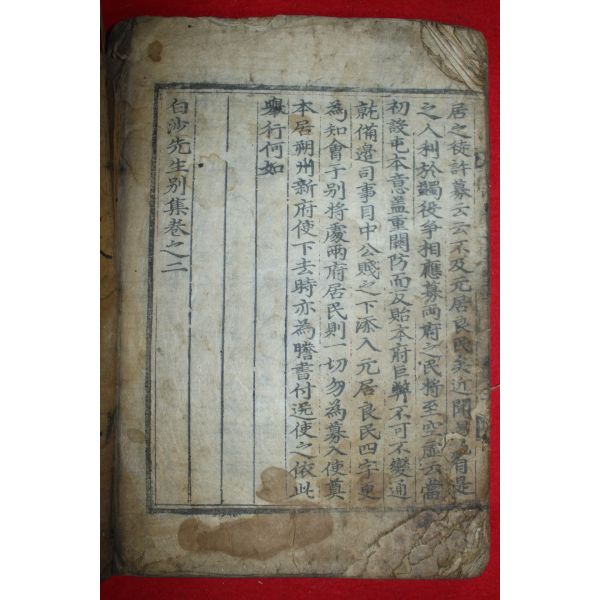 居之徒許募云云不及元居良民矣近聞
之人利於蠲役爭相應募兩府之民將至空虛云當
初設屯本意盖重關防而反貽本府巨弊不可不變通
就備邊司事目中公賤之下添入元居良民四字更
為知會于別將處兩府居民則一切勿為募入使奠
本居朔州新府使下去時亦為謄書付送使之依此
舉行何如
白沙先生別集卷之二